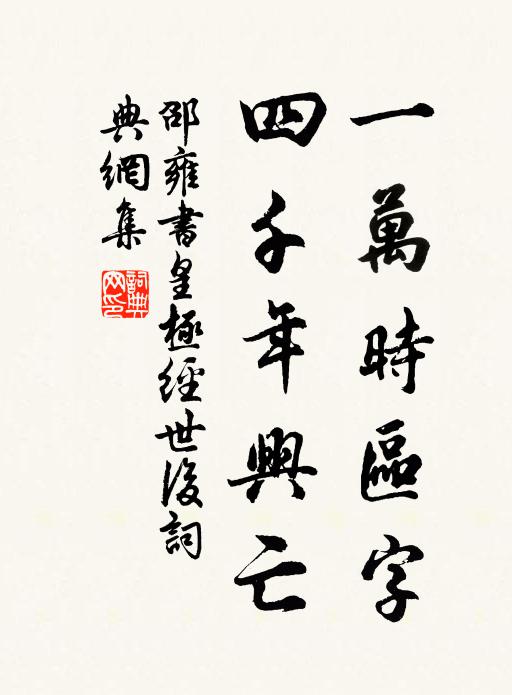 一萬時區字
四千年興亡
邵雍書皇極經世後詞
典網集
詞典
网印